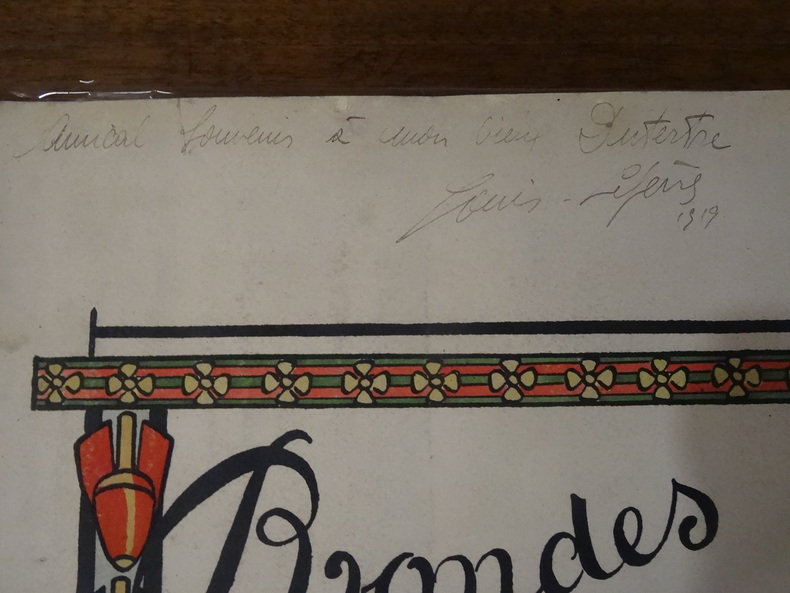 Amical Souvenir à mon vieux Dutertre
Louis - Lefèvre
1919
Brondes